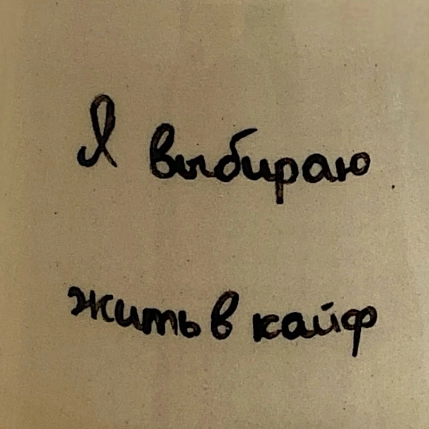 Я выбираю
жить в кайф